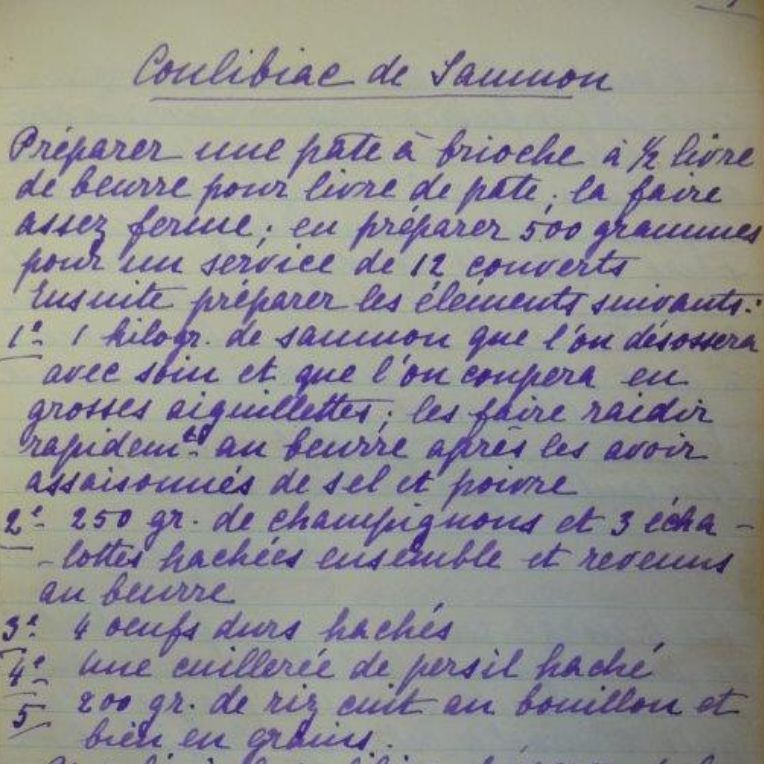 Coulibiac de Saumon
Préparer une pâte à brioche à ½ livre
de beurre pour livre de pâte; la faire
assez ferme; en préparer 500 grammes
pour un service de 12 couverts
Ensuite préparer les éléments suivants:
1º 1 kilogr. de saumon que l'on désossera
avec soin et que l'on coupera en
grosses aiguillettes; les faire raidir
rapidemt au beurre après les avoir
assaisonnés de sel et poivre
2º 250 gr. de champignons et 3 écha-
-lottes hachées ensemble et revenus
au beurre
3º 4 oeufs durs hachés
4º une cuillerée de persil haché
5 200 gr. de riz cuit au bouillon et
bien en grains.